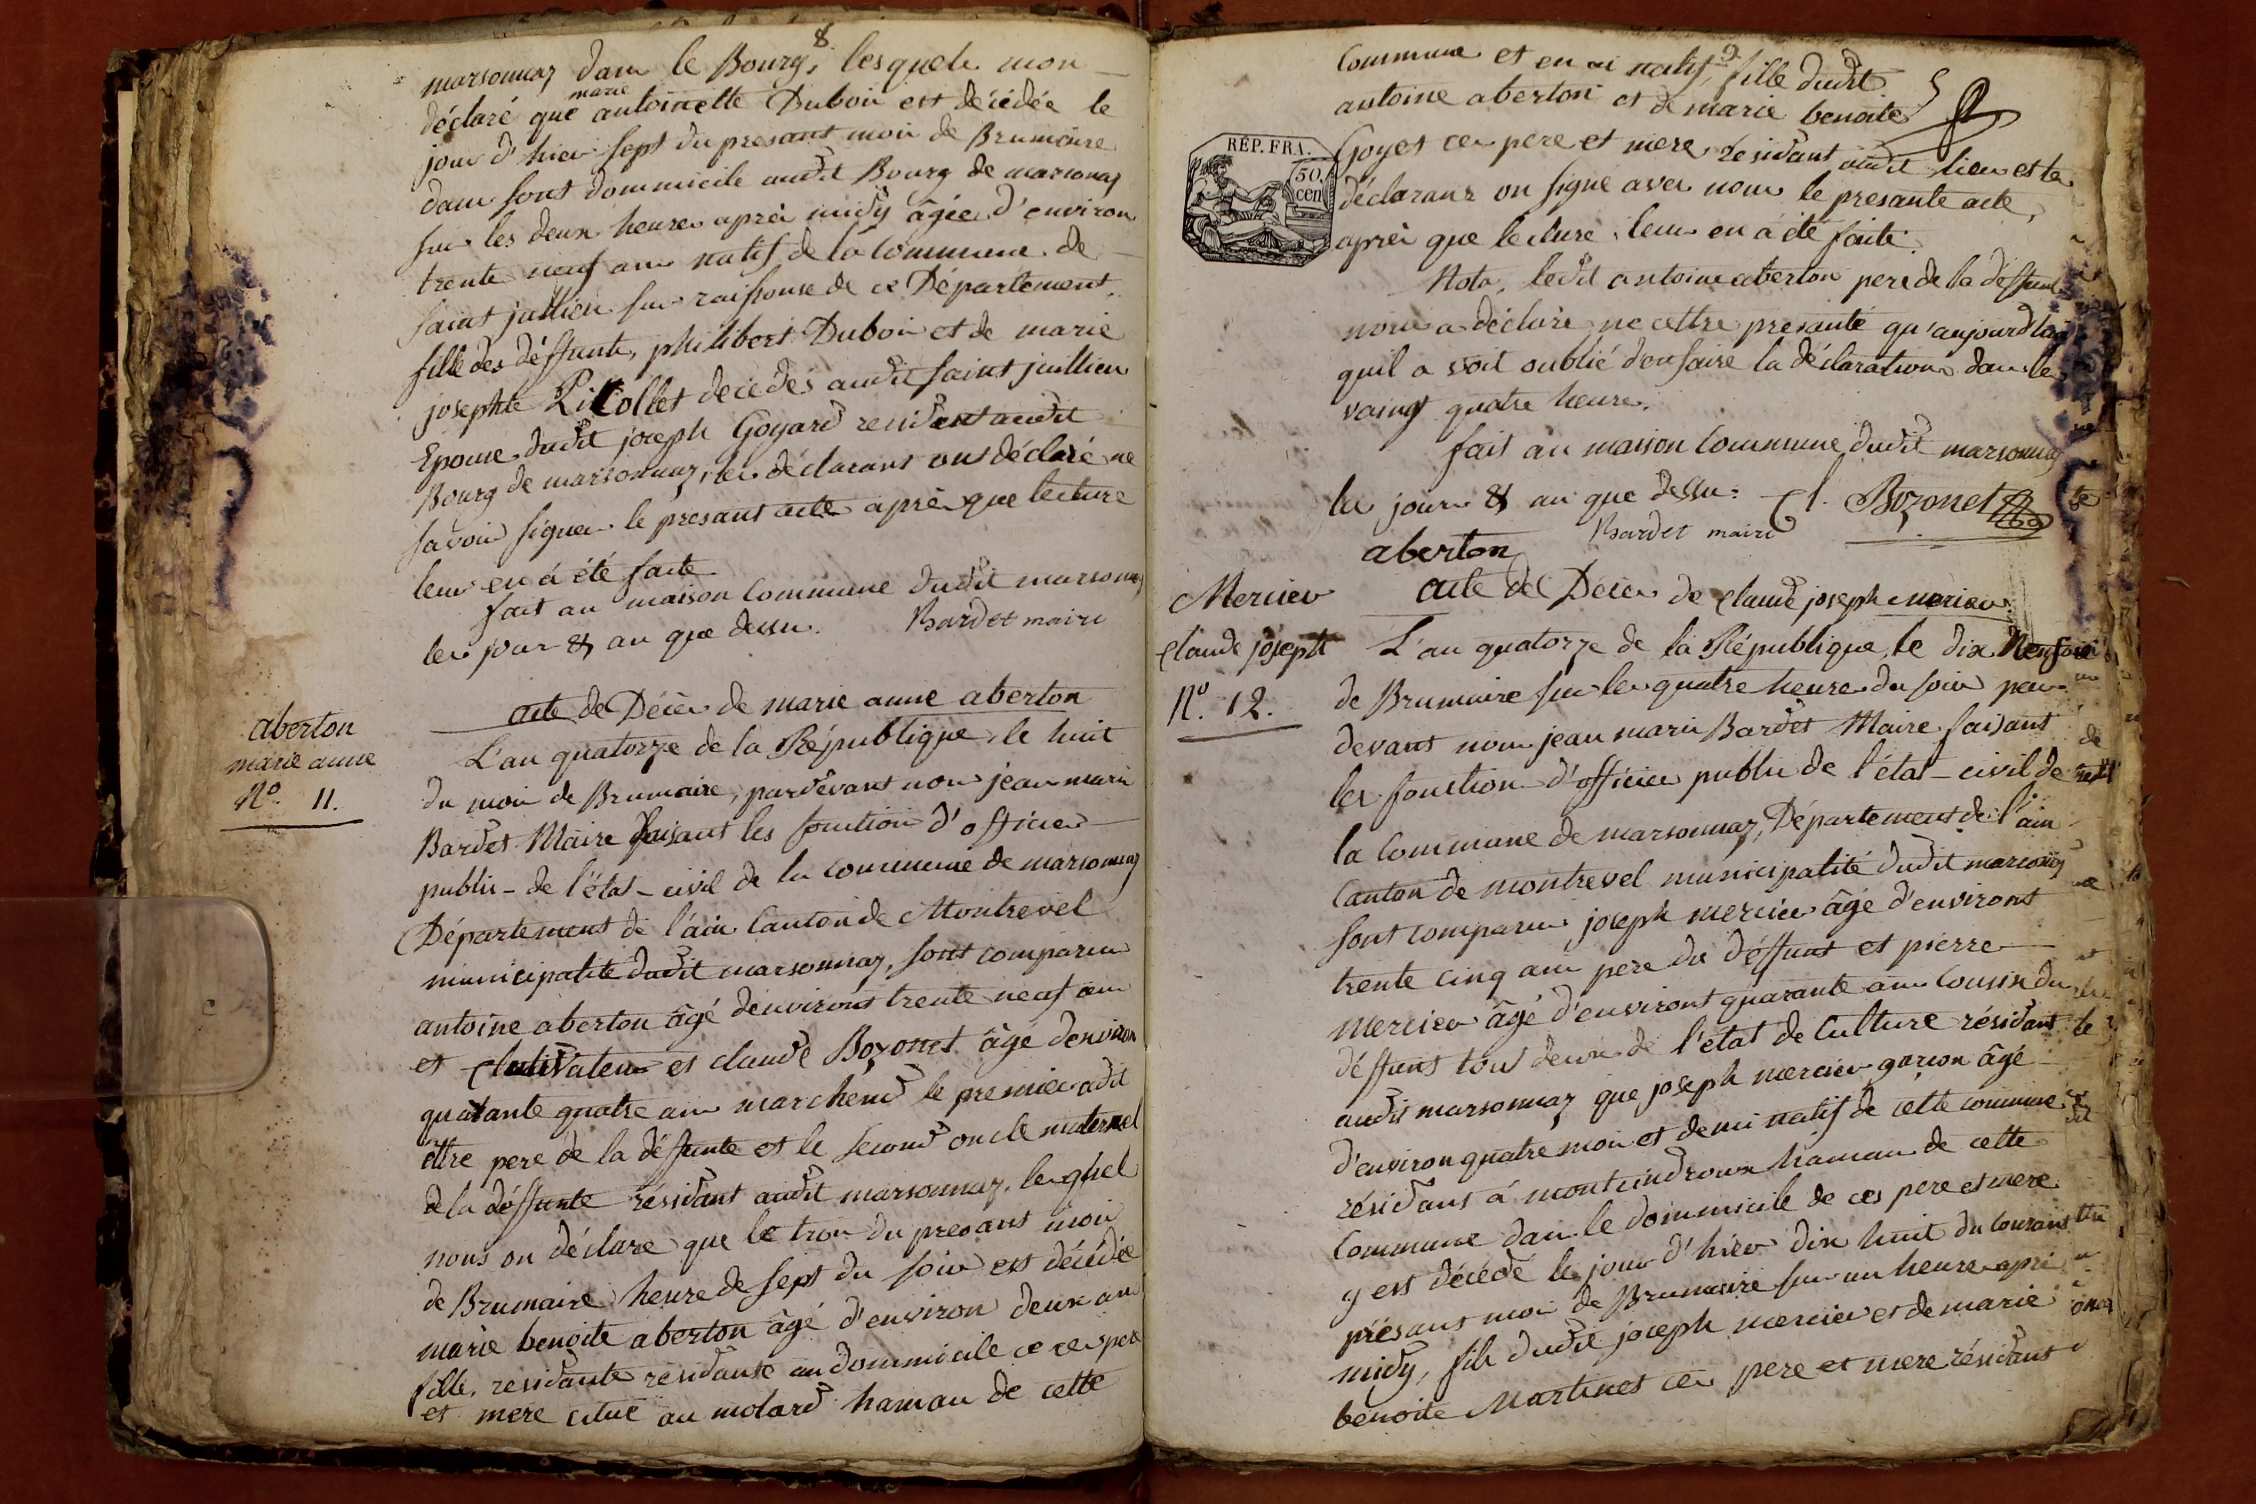 8
marsonnaz dans le Bourg, lesquels mon
déclaré que marie antoinette Duboin est décédée le
jour d'hier sept du presant moi de Brumaire
dans sont dommicile audit Bourg de marsonnaz
sur les deux heures après midy âgée d'environ
trente neuf ans natif de la Commune de
saint jullien sur raissouse de ce Département,
fille des déffunts, philibert Duboin et de marie
josephte Picollet décédés audit saint juillien
Epouse dudit joseph Goyard residant audit
Bourg de marsonnaz, les déclarans ont déclaré ne
savoir signer le presant acte après que lecture
leur en á été faite
fait au maison Commune dudit marsonnaz
les jour & an que dessu. Bardet maire
acte de Décès de marie anne aberton
aberton
marie anne
N.º 11.
L'an quatorze de la République le huit
du moi de Brumaire, pardevant nou jean marie
Bardet Maire faisant les fonction d'officier
public de l'état civil de la commune de marsonnaz
Département de l'ain Canton de Montrevel
municipalité dudit marsonnaz, sont comparu
antoine aberton âgé denviront trente neuf ans
et Cultivateur et claude Bozonet âgé denviron
quatante quatre ans marchend le premier adit
ettre pere de la déffunte et le second oncle maternel
de la déffunte résidant audit marsonnaz, lesquel
nous on déclare que le troi du presant moi
de Brumaire heure de sept du soir est décédée
marie benoite aberton âgé d'environ deux an
fille, residante residante au dommicile ce ces pere
et mere citué au molard hamau de cette
9
Commune et en ai natif, fille dudit
antoine aberton et de marie benoite
Goyet ces pere et mere residant audit lieu et le
déclarans on signé avec nous le presante acte,
après que lecture leur en á été faite.
RÉP. FRA.
50. cen
Nota, ledit antoine aberton pere de la déffunte
nous a déclaré ne cettre presanté qu'aujourd'hui
quil a voit oublié d'en faire la déclaration dans le
vaingt quatre heure.
fait au maison Commune dudit marsonnaz
les jour & an que dessu. Cl. Bozonet
aberton Bardet maire
acte de Décès de claude joseph mercier
Mercier
claude joseph
N.º 12.
L'an quatorze de la République, le dix Neufvie
de Brumaire sur les quatre heure du soir par
devant nou jean marie Bardet Maire faisant
les fonction d'officier public de l'état-civil de
la Commune de marsonnaz, Département de l'ain
Canton de montrevel municipalité dudit marsonnaz
sont comparu joseph mercier âgé d'environt
trente cinq ans pere du déffunt et pierre
mercier âgé d'environt quarante ans Cousin du
déffunt tous deux de l'état de Culture résidant
audit marsonnaz que joseph mercier garcon âgé
d'environ quatre moi et demi natif de cette commune
résidant á montcindroux hamau de cette
Commune dans le dommicile de ces pere et mere
y est décédé le jour d'hier dix huit du courant
présant moi de Brumaire sur un heure après
midy, fils dudit joseph mercier et de marie
benoite Martinet ces pere et mere résidant